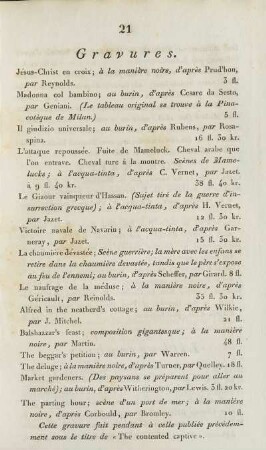 21
Gravures.
Jésus-Christ en croix; à la manière noire, d'après Prud'hon,
par Reynolds. 3 fl.
Madonna col bambino; au burin, d'après Cesare da Sesto,
par Geniani. (Le tableau original se trouve à la Pina-
cotique de Milan.) 5 fl.
Il giudizio universale; au burin, d'après Rubens, par Rosa-
spina. 16 fl. 30 kr.
L'attaque repoussée. Fuite de Mameluck. Cheval arabe que
l'on entrave. Cheval turc à la montre. Scènes de Mame-
lucks; à l'acqua-tinta, d'après C. Vernet, par Jazet.
à 9 fl. 40 kr. 38 fl. 40 kr.
Le Giaour vainqueur d'Hassan. (Sujet tiré de la guerre d'in-
surrection grecque); à l'acqua-tinta, d'après H. Vernet,
par Jazet. 12 fl. 30 kr.
Victoire navale de Navarin; à l'acqua-tinta, d'après Gar-
neray, par Jazet. 15 fl. 30 kr.
La chaumière dévastée; Scène guerrière; la mère avec les enfans se
retire dans la chaumière dévastée, tandis que le père s'expose
au feu de l'ennemi; au burin, d'après Scheffer, par Girard. 8 fl.
Le naufrage de la méduse; à la manière noire, d'après
Géricault, par Reinolds. 35 fl. 30 kr.
Alfred in the neatherd's cottage; au burin, d'après Wilkie,
par J. Mitchel. 21 fl.
Balshazzar's feast; composition gigantesque; à la manière
noire, par Martin. 48 fl.
The beggar's petition; au burin, par Warren. 7 fl.
The deluge; à la manière noire, d'après Turner, par Quelley. 18 fl.
Market gardeners. (Des paysans se préparent pour aller au
marché); au burin, d'après Witherington, par Lewis. 5 fl. 20 kr.
The parting hour; scène d'un port de mer; à la manière
noire, d'après Corbould, par Bromley. 10 fl.
Cette gravure fait pendant à celle publiée précédem-
ment sous le titre de « The contented captive ».